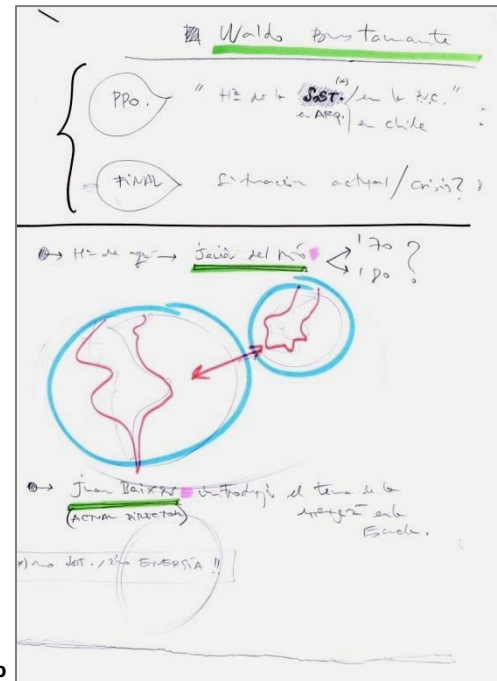 Waldo Bustamante
PPO. " Hª de la SOST. (*) / en la P.U.C. "
en ARQ. / en chile
FINAL Situación actual / crisis?
Hª de aquí → Javier del Río '70 ?
'80
Juan Baixas introdujo el tema de la
(ACTUAL DIRECTOR) energía en la
Escuela.
*) no SOST. / sino ENERGÍA !!